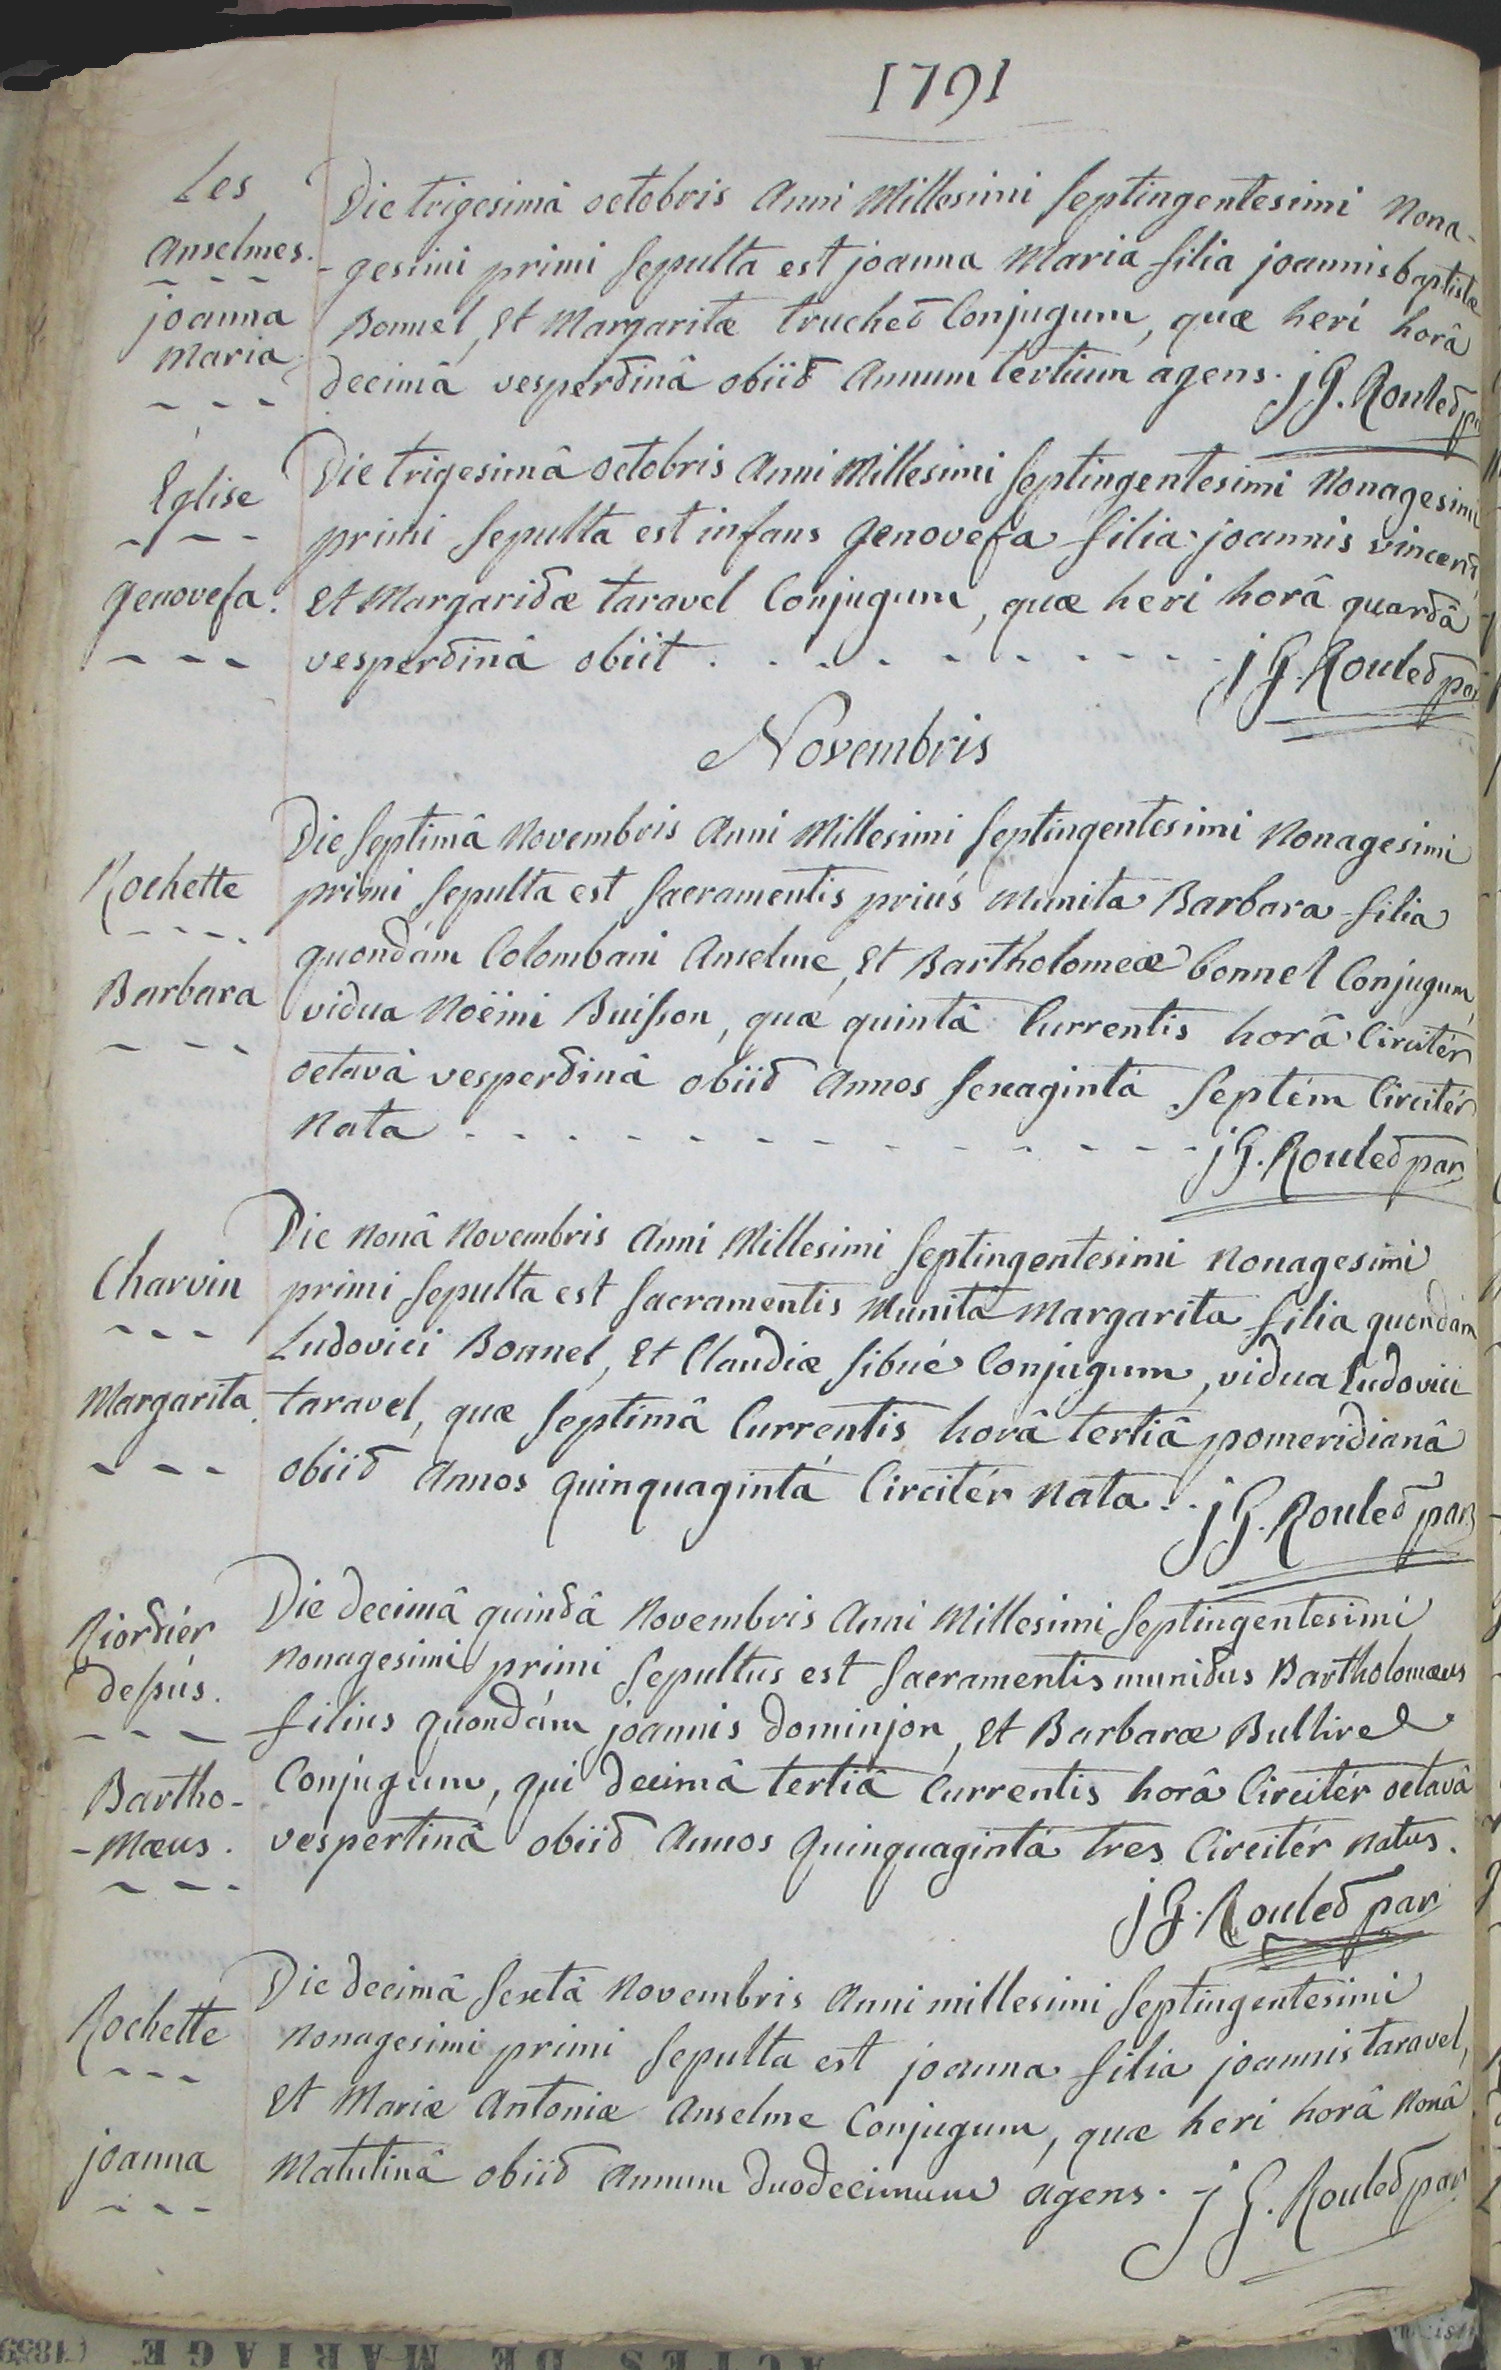 1791
Les
Anselmes.
joanna
Maria
Die trigesimâ octobris Anni Millesimi Septingentesimi Nona-
-gesimi primi Sepulta est joanna Maria filia joannisbaptistæ
Bonnel, Et Margaritæ truchet Conjugum, quæ heri horâ
decimâ vespertinâ obiit Annum tertium agens. jG. Roulet p
Église
genovefa.
Die trigesimâ octobris Anni Millesimi Septingentesimi Nonagesimi
primi Sepulta est infans genovefa filia joannis vincent
Et Margaritæ taravel Conjugum, quæ heri horâ quartâ
vespertinâ obiit . - - - - - - - - - jG. Roulet par
Novembris
Rochette
Barbara
Die Septimâ Novembris Anni Millesimi Septingentesimi Nonagesimi
primi Sepulta est Sacramentis priús Munita Barbara filia
quondám Colombani Anselme, Et Bartholomeæ bonnel Conjugum,
vidua Noëmi Buisson, quæ quintâ Currentis horâ Circitér
octavâ vespertinâ obiit Annos Sexagintá Septém Circitér
Nata - - - - - - - - - - - - - jG. Roulet par
Charvin
Margarita
Die Nonâ Novembris Anni Millesimi Septingentesimi Nonagesimi
primi Sepulta est Sacramentis Munita Margarita filia quondám
Ludovici Bonnel, Et Claudiæ Sibué Conjugum, vidua Ludovici
taravel, quæ Septimâ Currentis horâ tertiâ pomeridianâ
obiit Annos quinquagintá Circitér Nata. . jG. Roulet par
Riortiér
dessús.
Bartho-
-Mæus.
Die decimâ quintâ Novembris Anni Millesimi Septingentesimi
Nonagesimi primi Sepultus est Sacramentis munitus Bartholomæus
filius quondám joannis dominjon, Et Barbaræ Bulliret
Conjugum, qui decimâ tertiâ Currentis horâ Circitér octavâ
vespertinâ obiit Annos quinquagintá tres Circitér Natus.
jG. Roulet par
Rochette
joanna
Die decimâ Sextâ Novembris Anni millesimi Septingentesimi
Nonagesimi primi Sepulta est joanna filia joannis taravel,
Et Mariæ Antoniæ Anselme Conjugum, quæ heri horâ Nonâ
Matutinâ obiit Annum duodecimum agens. jG. Roulet par
ACTES DE MARIAGE (1859